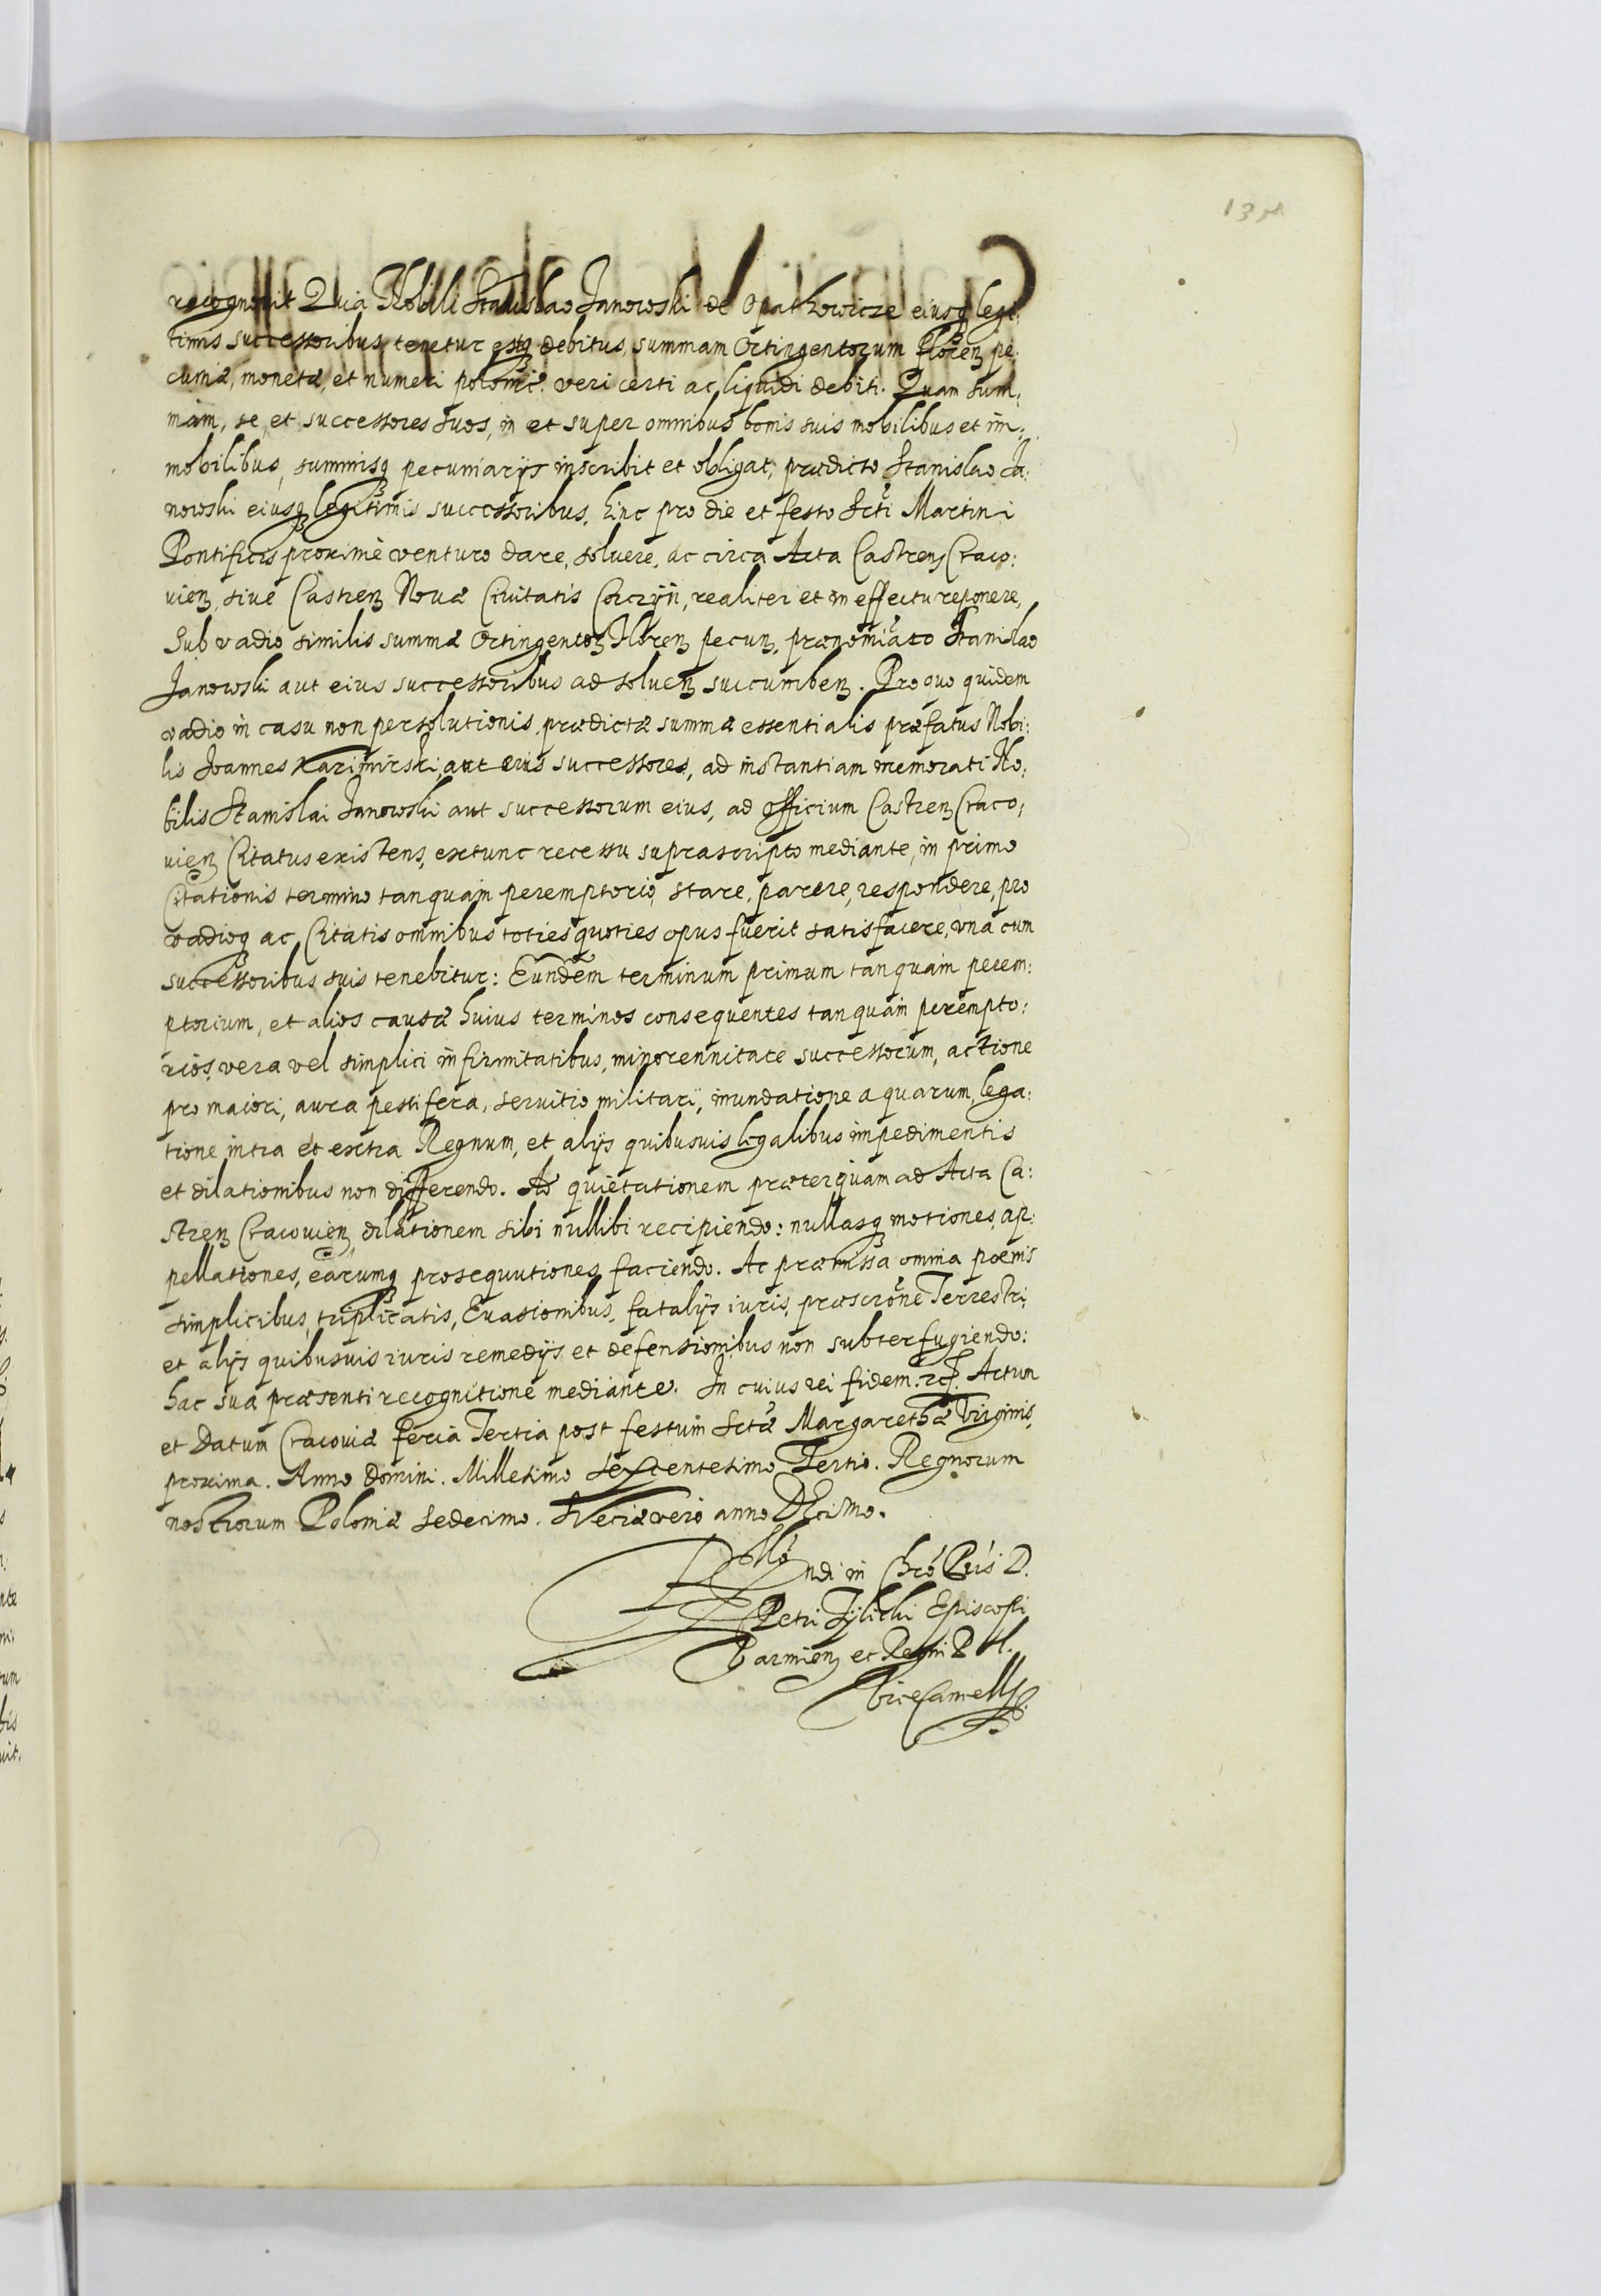 recognovit Quia Nobili Stanislao Janowski de Opathowicze eiusq legi:
timis successoribus, tenetur estq debitus, summam Octingentorum Floreꝝ pe:
cuniæ, monetæ, et numeri polonic: veri certi ac liquidi debiti. Quam sum:
mam, se, et successores suos, in et super omnibus bonis suis mobilibus et im:
mobilibus, summisq pecuniarijs inscribit et obligat, prædicto Stanislao Ja:
nowski eiusq legitimis successoribus, hinc pro die et festo Scti Martini
Pontificis proximè venturo dare, solvere, ac circa Acta Castreꝝ Craco:
vieꝝ, sive Castreꝝ Novæ Civitatis Corczÿn, realiter et in effectu reponere,
Sub vadio similis summæ Octingentoꝝ Floreꝝ pecuꝝ, prænomiato Stanislao
Janowski aut eius successoribus ad solveꝝ succumbeꝝ. Pro quo quidem
vadio in casu non persolutionis, prædictæ summæ essentialis præfatus Nobi:
lis Joannes Kazimirski, aut eius successores, ad instantiam memorati No:
bilis Stanislai Janowski aut successorum eius, ad Officium Castreꝝ Craco:
vieꝝ Citatus existens, extunc recessu suprascripto mediante, in primo
Citationis termino tanquam peremptorio, stare, parere, respondere, pro
vadioq ac Citatis omnibus toties quoties opus fuerit satisfacere, una cum
successoribus suis tenebitur: Eundem terminum primum tanquam perem:
ptorium, et alios causæ huius terminos consequentes tanquam perempto:
rios, vera vel simplici infirmitatibus, minorennitate successorum, actione
pro maiori, aura pestifera, servitio militari, inundatione aquarum, lega:
tione intra et extra Regnum, et alijs quibusvis legalibus impedimentis
et dilationibus non differendo. Ad quietationem præterquam ad Acta Ca:
streꝝ Cracovieꝝ, dilationem sibi nullibi recipiendo: nullasq motiones, ap:
pellationes, earumq prosequutiones faciendo. Ac præmissa omnia poenis
simplicibus, triplicatis, Evasionibus, fatalijs iuris, præscrone Terrestri,
et alijs quibusvis iuris remedijs et defensionibus non subterfugiendo:
hac sua præsenti recognitione mediante. In cuius rei fidem. rcȷ. Actum
et Datum Cracoviæ feria Tertia post festum Sctæ Margarethæ Virginis,
proxima. Anno Domini. Millesimo Sexcentesimo Tertio. Regnorum
nostrorum Poloniæ sedecimo. Sveciæ vero anno DEcimo.
ndi in Chró Pris D.
Petri Tylicki Episcopi
Varmieꝝ et Regni P
ViceCancelly